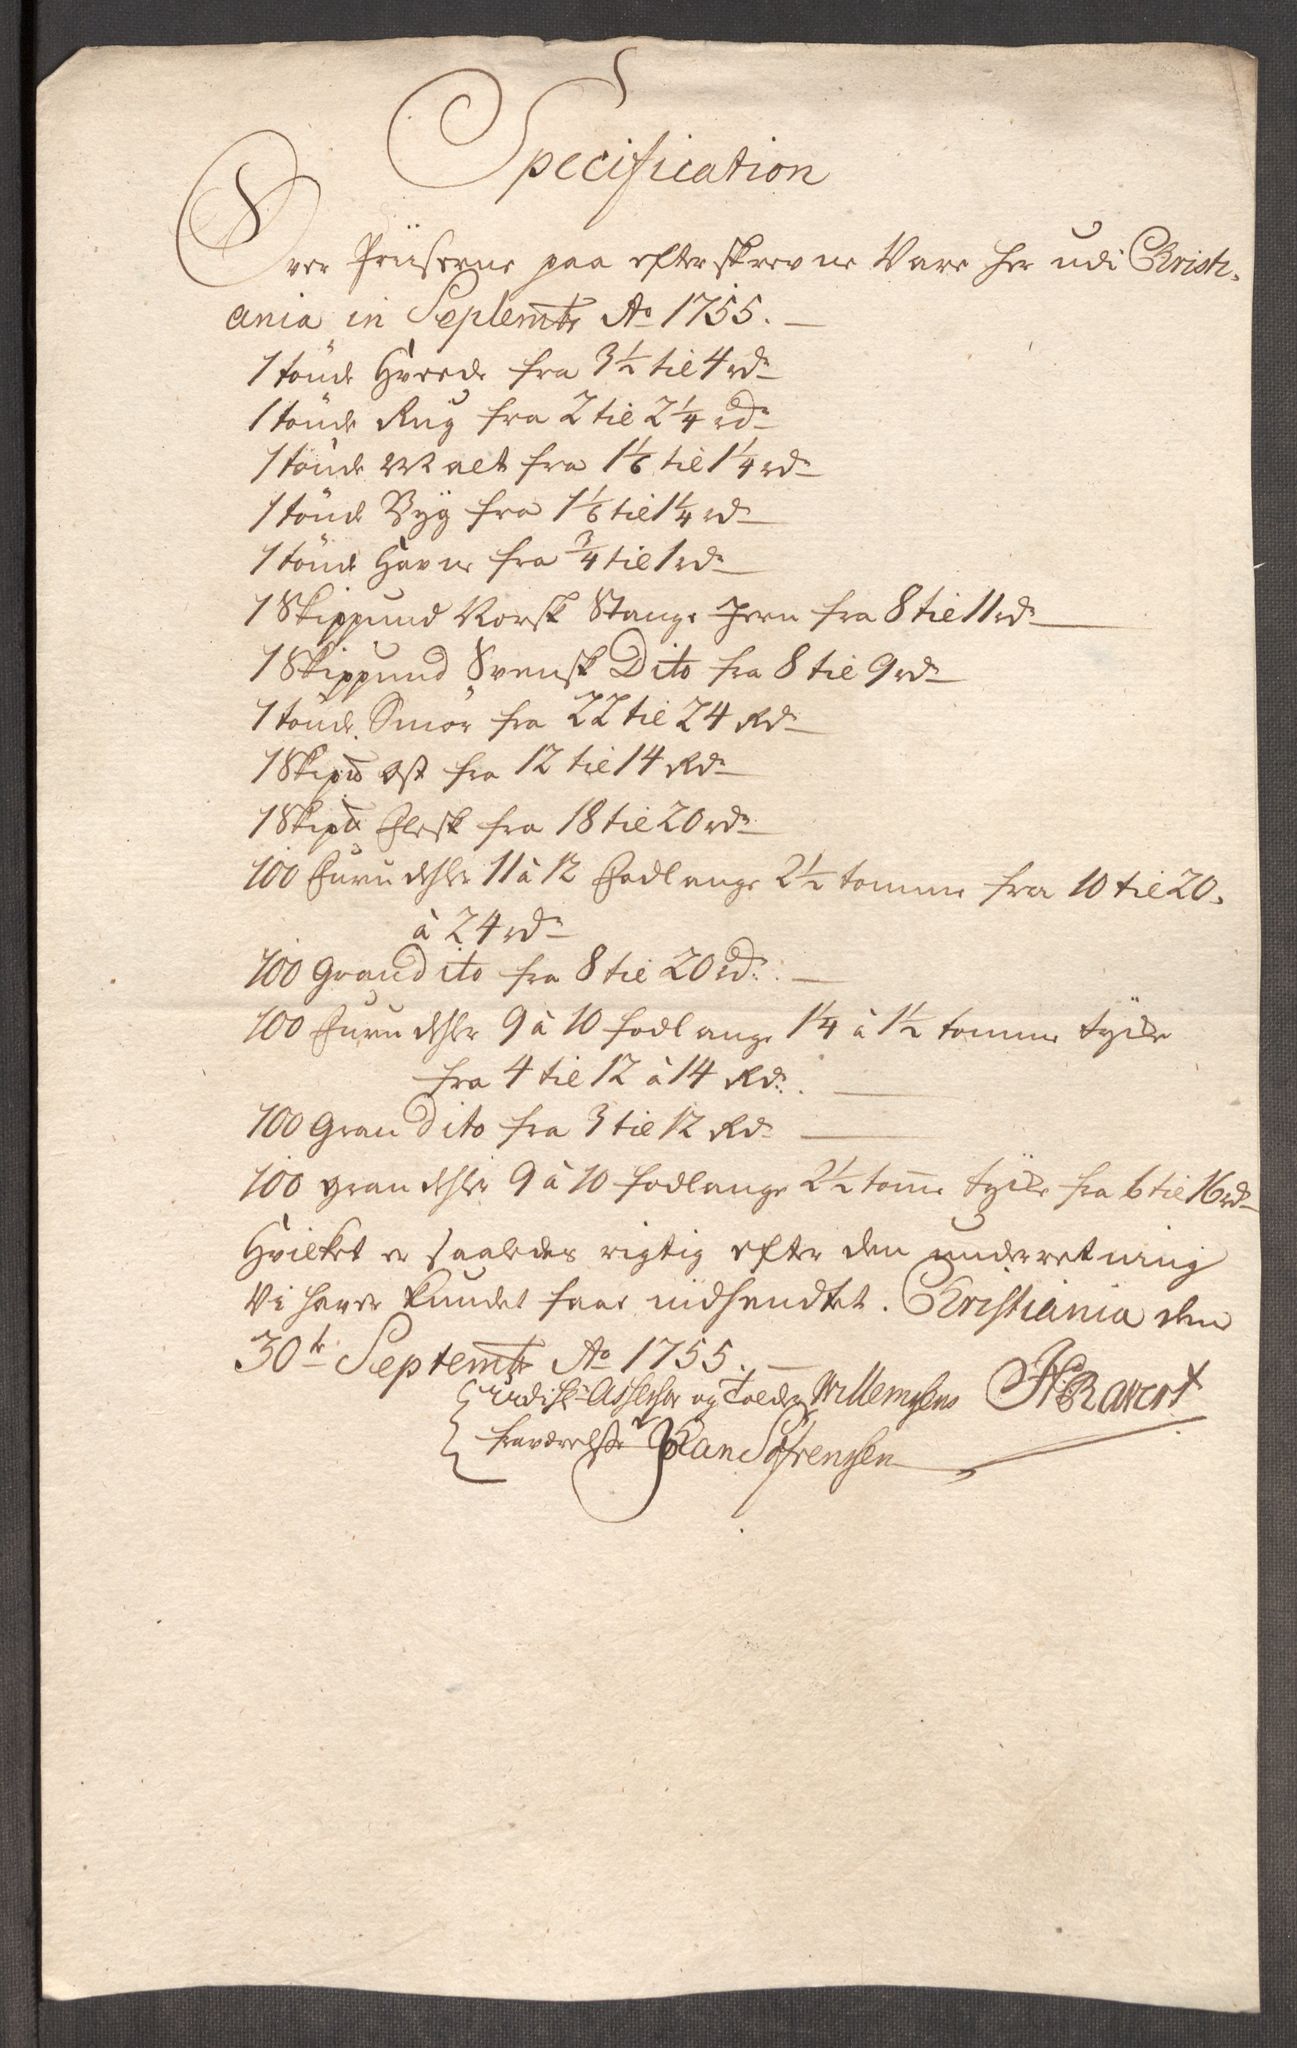 Specification
Over Priiserne paa efterskrevne Vare her udi Christi-
ania in Septembr Ao 1755. —
1 tönde Hvede fra 3½ til 4 rd.
1 tönde Rug fra 2 til 2¼ rd.
1 tönde Malt fra 1⅙ til 1¼ rd.
1 tönde Byg fra 1⅙ til 1¼ rd.
1 tönde Havre fra ¾ til 1 rd.
1 Skippund Norsk Stange Jern fra 8 til 11 rd.
1 Skippund Svensk Dito fra 8 til 9 rd.
1 tönde Smör fra 22 til 24 Rd.
1 Skipu Ost fra 12 til 14 Rd.
1 Skipu Flesk fra 18 til 20 rd.
100 Furu dehler 11 à 12 Fod lange 2½ tomme fra 10 til 20.
à 24 rd.
100 Gran Dito fra 8 til 20 rd. —
100 Furu dehler 9 à 10 fod lange 1¼ à 1½ tomme tycke
fra 4 til 12 à 14 Rd. —
100 Gran Dito fra 3 til 12 Rd. —
100 gran dehler 9 à 10 fod lange 2½ tome tycke fra 6 til 16 rd.
Hvilket er saaledes rigtig efter den underretning
Vi haver kundet faae indhendtet. Christiania den
30te Septembr Ao 1755. —
udi Assessor og Tolder Willemsens
fraværelse Johan Söfrensen